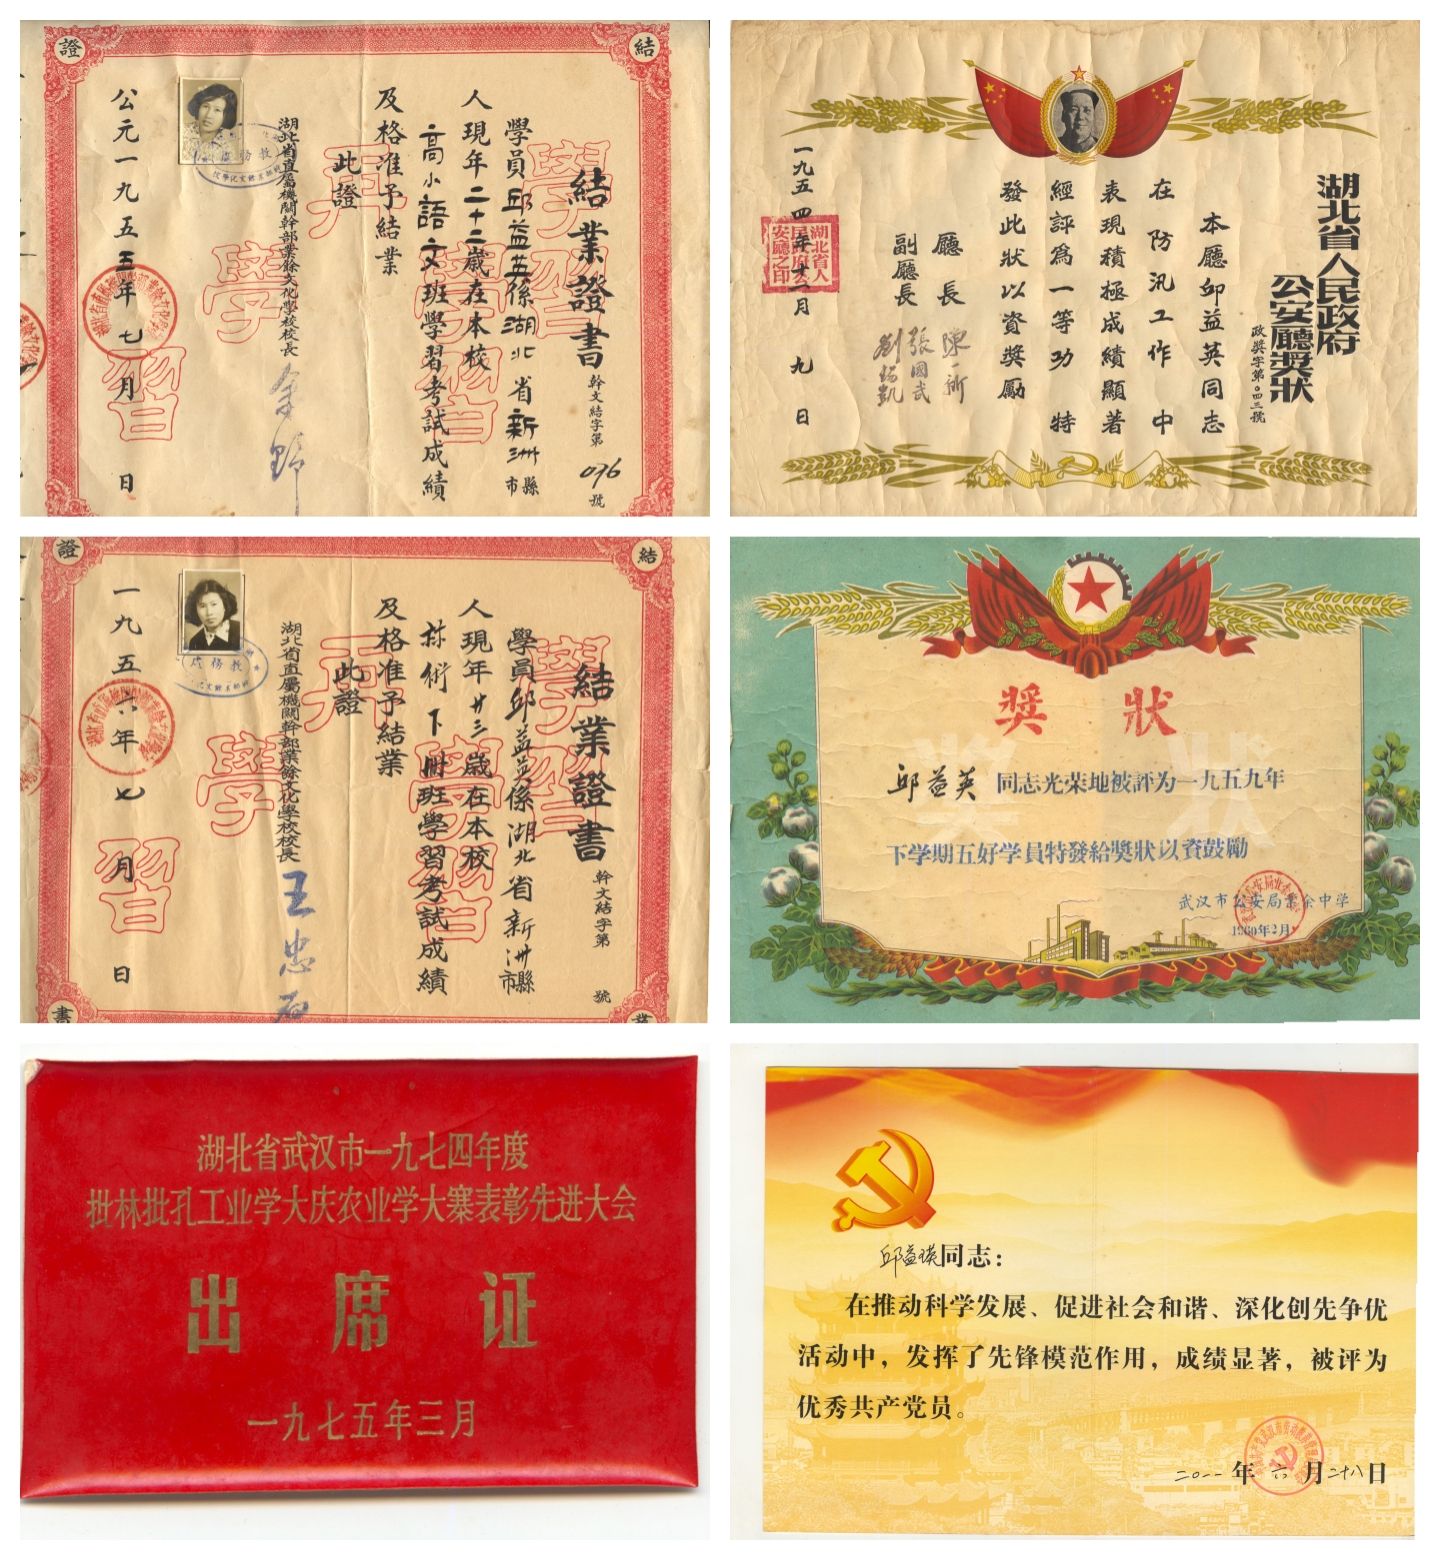 結
證
結業證書
幹文結字第096號
學員邱益英係湖北省新洲縣市
人現年二十二歲在本校
高小語文班學習考試成績
及格准予結業
此證
湖北省直屬機關幹部業餘文化學校校長
公元一九五五年七月 日
湖北省人民政府
公安廳獎狀
政奬字第〇四三號
本廳邱益英同志
在防汛工作中
表現積極成績顯著
經評為一等功特
發此狀以資獎勵
廳長 陳一新
副廳長 張國武
一九五四年十一月九日
湖北省人民政府公安廳之印
結
證
結業證書
幹文結字第 號
學員邱益英係湖北省新洲縣市
人現年廿三歲在本校
祘術下冊班學習考試成績
及格准予結業
此證
湖北省直屬機關幹部業餘文化學校校長
一九五六年七月 日
書
業
獎狀
邱益英同志光荣地被評为一九五九年
下学期五好学員特發給獎狀以資鼓勵
武汉市公安局業余中学
1960年2月
湖北省武汉市一九七四年度
批林批孔工业学大庆农业学大寨表彰先进大会
出席证
一九七五年三月
邱益瑛同志：
在推动科学发展、促进社会和谐、深化创先争优
活动中，发挥了先锋模范作用，成绩显著，被评为
优秀共产党员。
二〇一一年六月二十八日